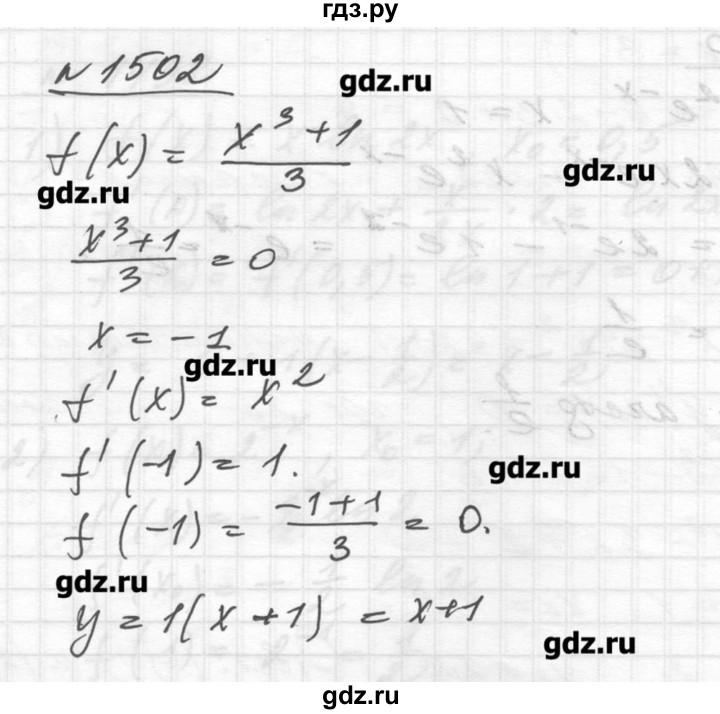 гдз.ру
№1502
gdz.ru
f(x) = (x³+1)/3
gdz.ru
gdz.ru
(x³+1)/3 = 0
x = -1
gdz.ru
f'(x) = x²
f'(-1) = 1.
gdz.ru
f(-1) = (-1+1)/3 = 0.
gdz.ru
y = 1(x+1) = x+1
gdz.ru
gdz.ru